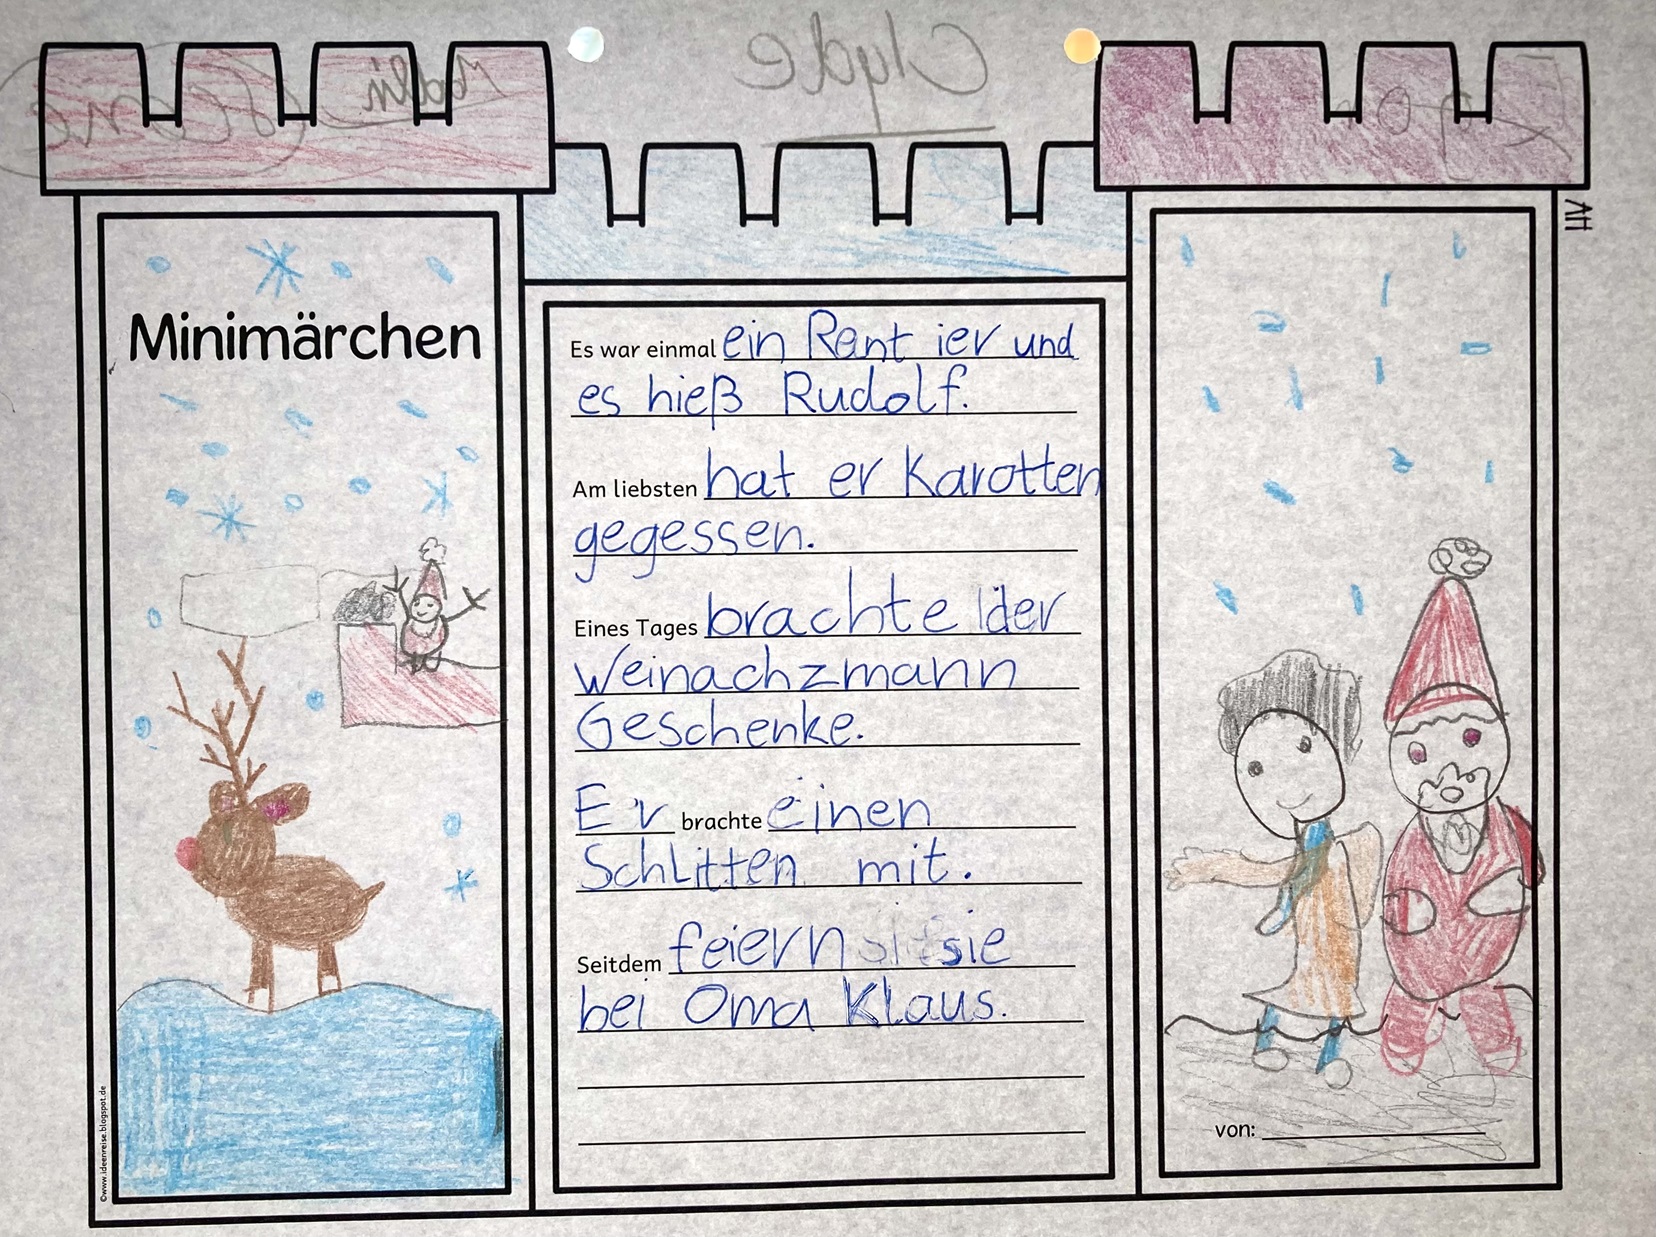 Clyde
Madlin
Minimärchen
Es war einmal ein Rentier und
es hieß Rudolf.
Am liebsten hat er Karotten
gegessen.
Eines Tages brachte der
Weinachzmann
Geschenke.
Er brachte einen
Schlitten mit.
Seitdem feiern sie
bei Oma Klaus.
von:
©www.ideenreise.blogspot.de